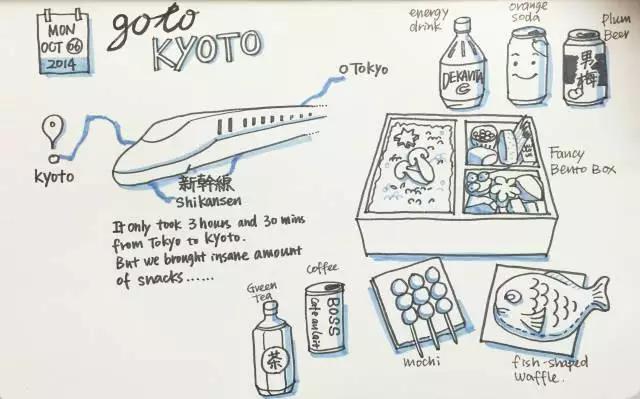 MON
OCT 06
2014
go to
KYOTO
Tokyo
kyoto
新幹線
Shikansen
It only took 3 hours and 30 mins
from Tokyo to kyoto.
But we brought insane amount
of snacks......
energy
drink
DEKAVITA
C
orange
soda
Plum
Beer
男梅
Fancy
Bento Box
Green
Tea
茶
Coffee
BOSS
Cafe au lait
mochi
fish-shaped
waffle.